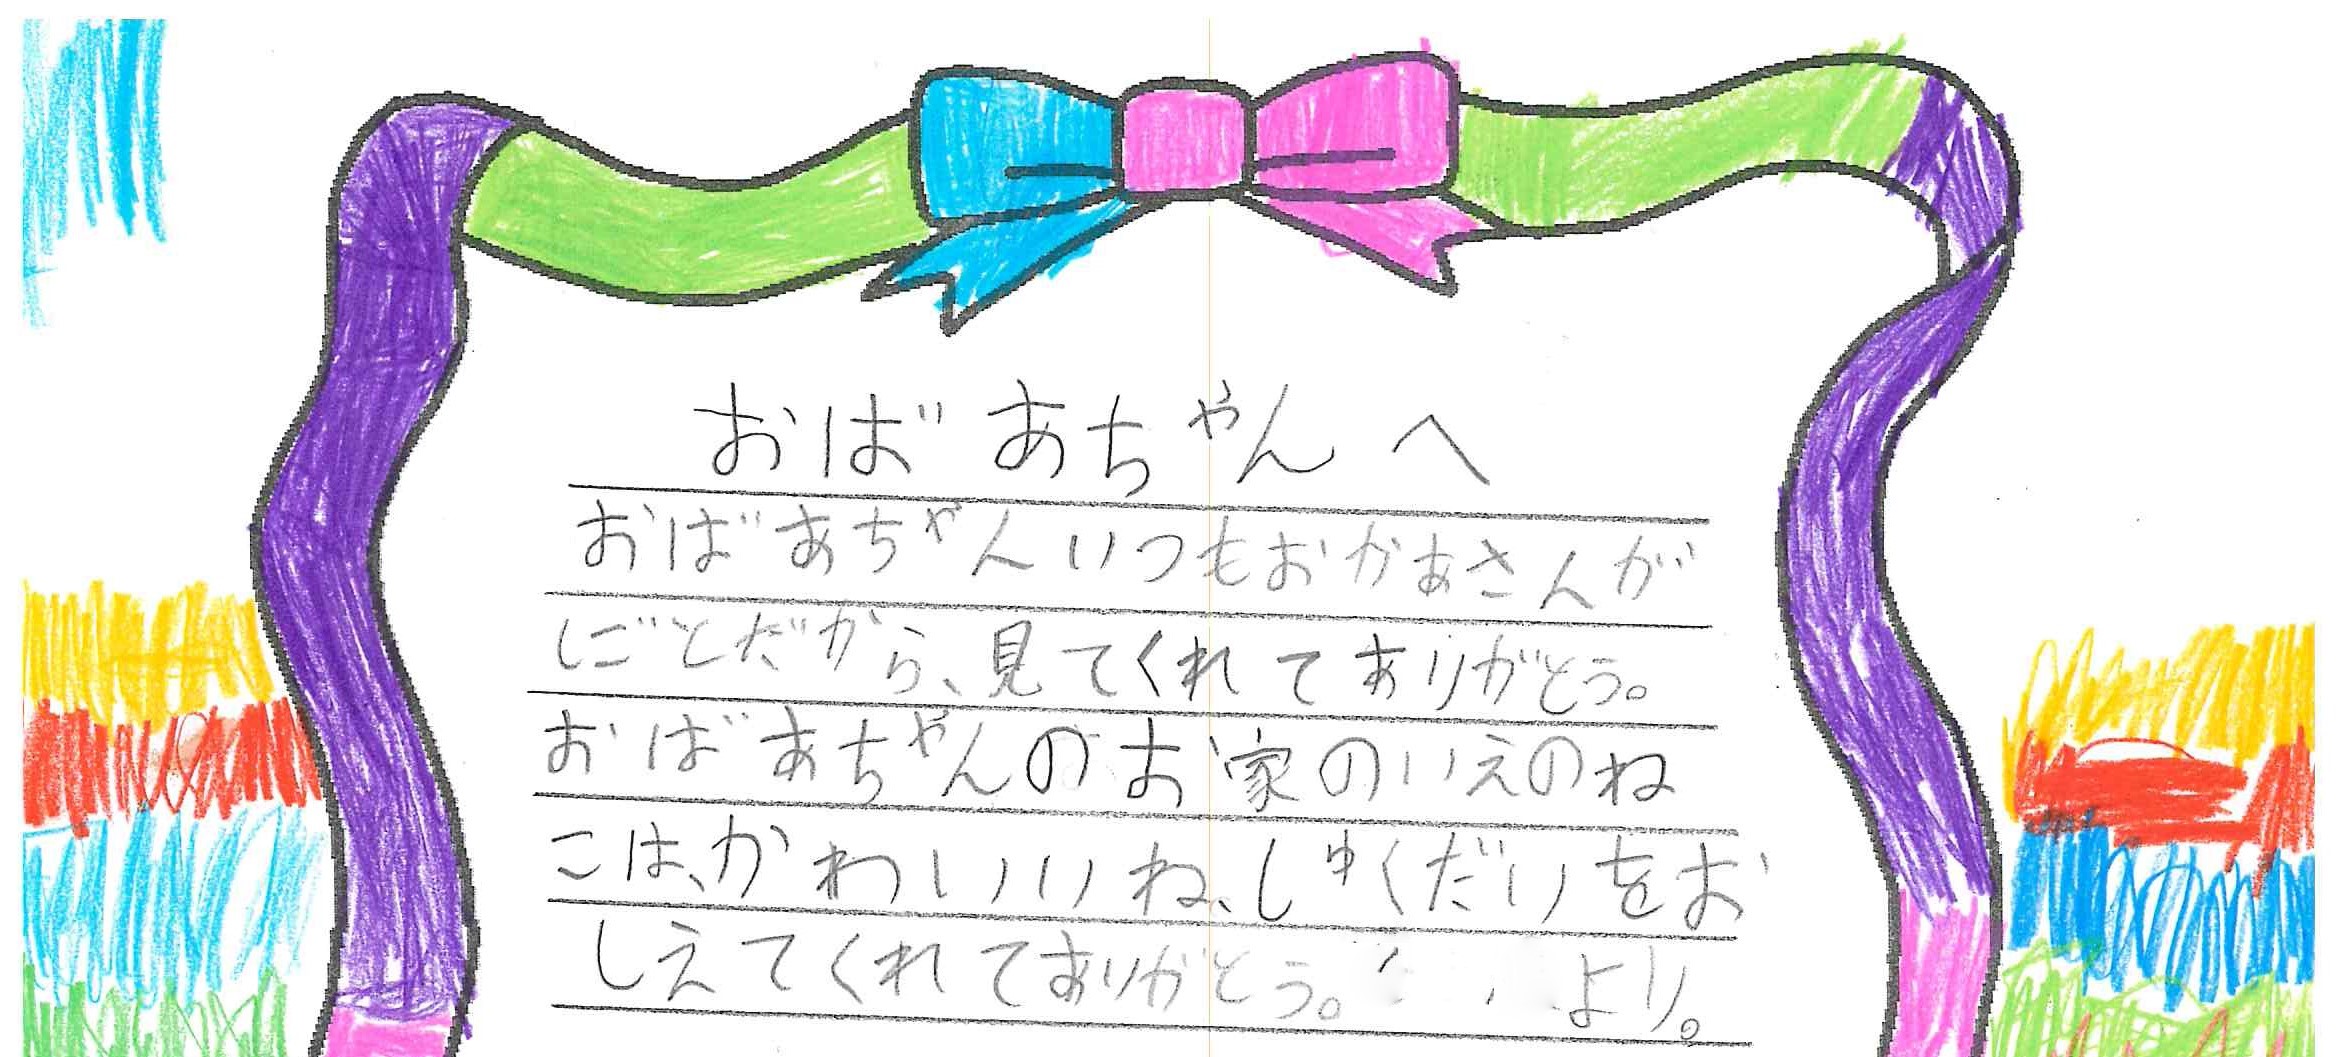 おばあちゃんへ
おばあちゃんいつもおかあさんが
しごとだから、見てくれてありがとう。
おばあちゃんのお家のいえのね
こは、かわいいね、しゅくだいをお
しえてくれてありがとう。 より。